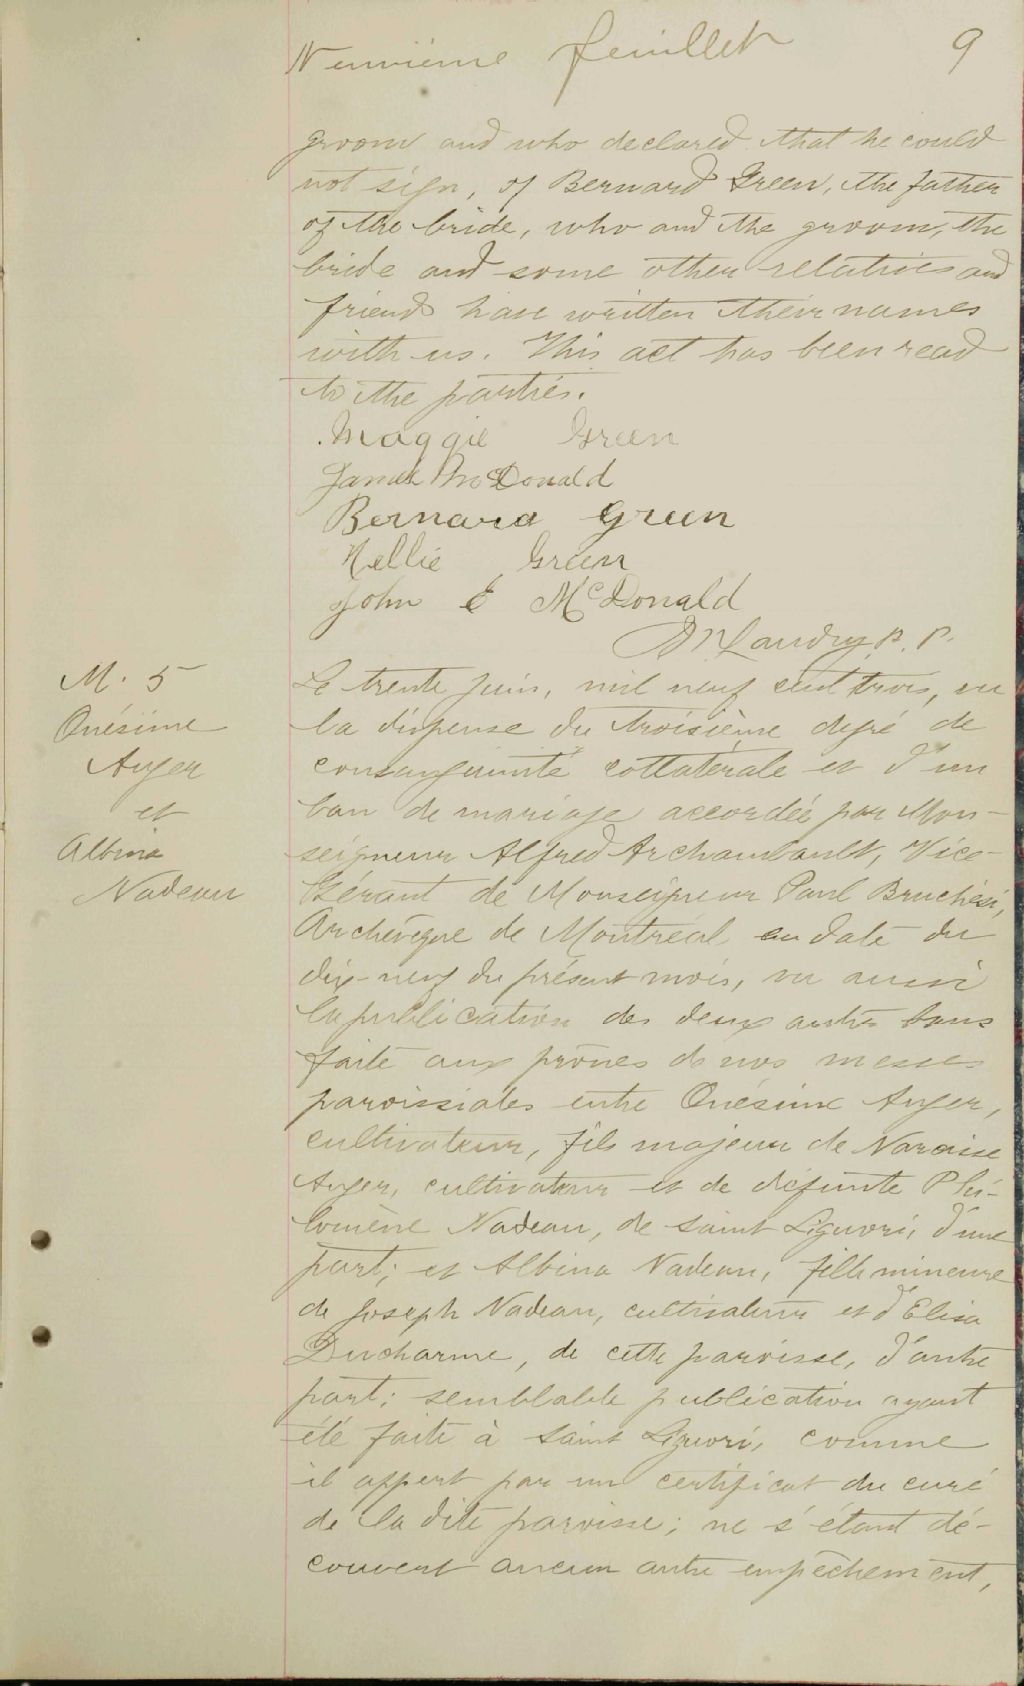 Neuvième feuillet 9
groom and who declared that he could
not sign, of Bernard Green, the father
of the bride, who and the groom, the
bride and some other relatives and
friends have written their names
with us. This act has been read
to the parties.
Maggie Green
James McDonald
Bernard Green
Nellie Green
John E McDonald
Landry P. P.
M. 5
Onésime
Auger
et
Albina
Nadeau
Le trente juin, mil neuf cent trois, vu
la dispense du troisième degré de
consanguinité collatérale et d'un
ban de mariage accordée par Mon-
seigneur Alfred Archambault, Vice-
Gérant de Monseigneur Paul Bruchési,
Archevêque de Montréal en date du
dix-neuf du présent mois, vu aussi
la publication des deux autres bans
faite aux prônes de nos messes
paroissiales entre Onésime Auger,
cultivateur, fils majeur de Narcisse
Auger, cultivateur et de défunte Phi-
lomène Nadeau, de saint Liguori, d'une
part; et Albina Nadeau, fille mineure
de Joseph Nadeau, cultivateur et d'Elisa
Ducharme, de cette paroisse, d'autre
part; semblable publication ayant
été faite à saint Liguori, comme
il appert par un certificat du curé
de la dite paroisse; ne s'étant dé-
couvert aucun autre empêchement,